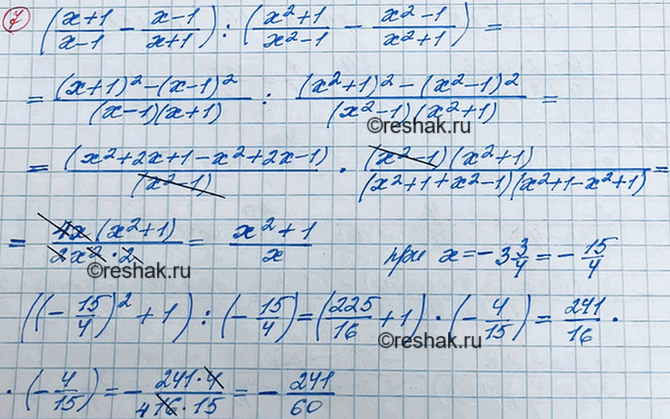 7) ((x+1)/(x-1) - (x-1)/(x+1)) : ((x²+1)/(x²-1) - (x²-1)/(x²+1)) =
= ((x+1)²-(x-1)²)/((x-1)(x+1)) : ((x²+1)²-(x²-1)²)/((x²-1)(x²+1)) =
©reshak.ru
= (x²+2x+1-x²+2x-1)/(x²-1) · ((x²-1)(x²+1))/((x²+1+x²-1)(x²+1-x²+1)) =
= (4x(x²+1))/(2x²·2) = (x²+1)/x при x=-3 3/4 = -15/4
©reshak.ru
((-15/4)²+1) : (-15/4) = (225/16+1)·(-4/15) = 241/16 ·
· (-4/15) = -(241·4)/(4 16·15) = -241/60
©reshak.ru